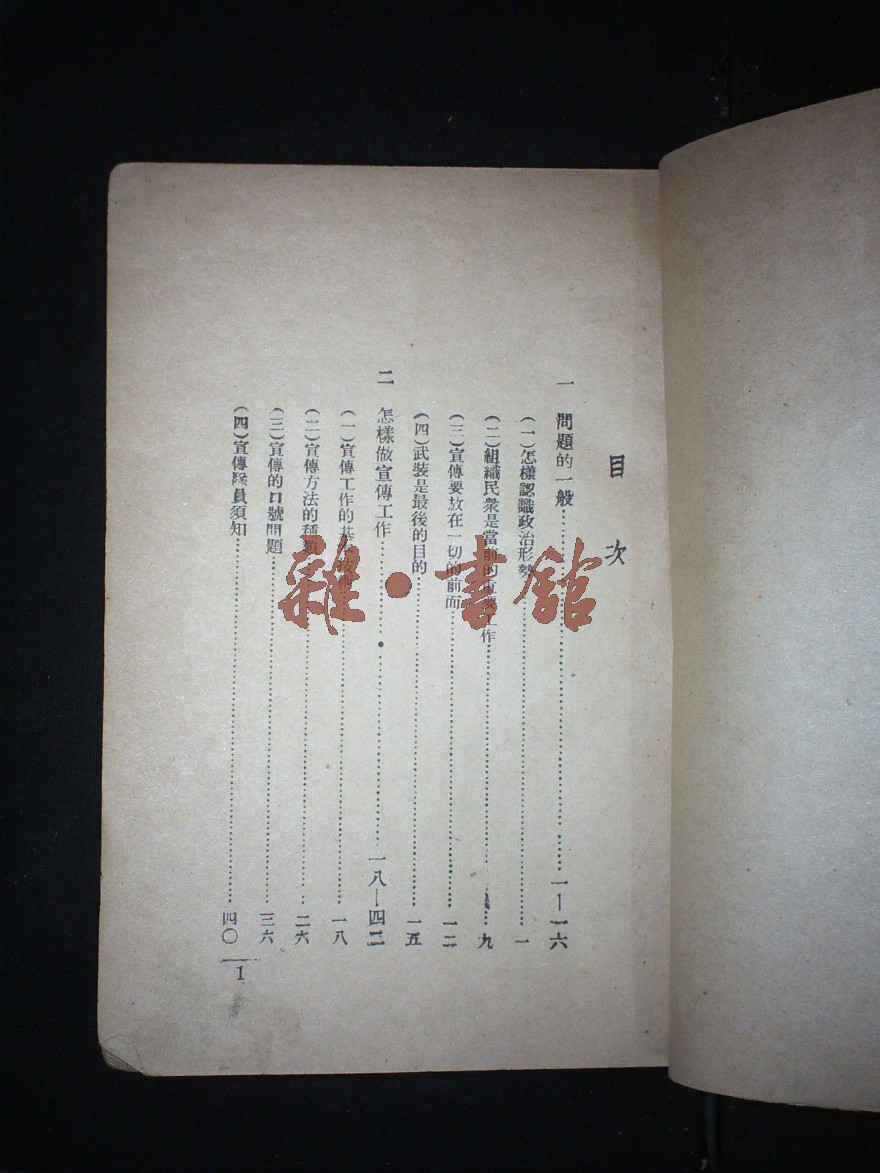 目次
一 問題的一般……一—一六
(一)怎樣認識政治形勢……一
(二)組織民衆是當前的工作……九
(三)宣傳要放在一切的前面……一二
(四)武裝是最後的目的……一五
二 怎樣做宣傳工作……一八—四二
(一)宣傳工作的基本技術……一八
(二)宣傳方法的種類……二六
(三)宣傳的口號問題……三六
(四)宣傳隊員須知……四〇
1
雜·書館